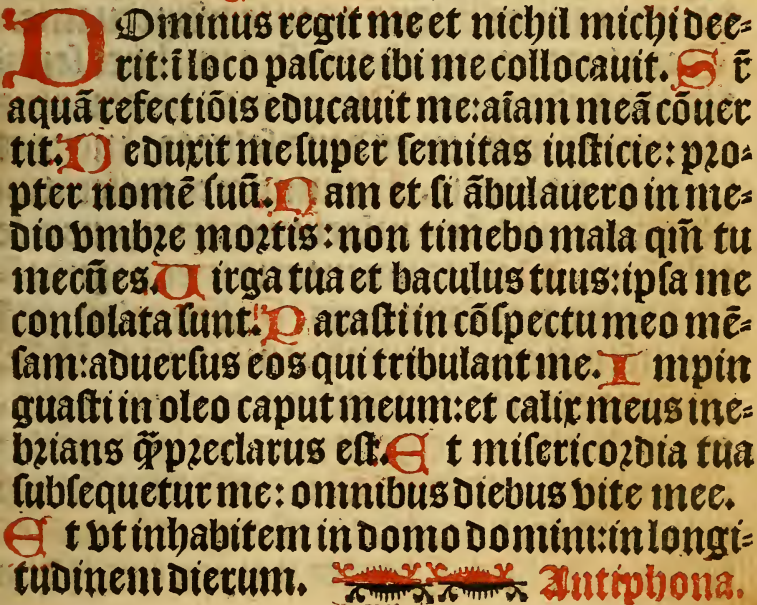 DOminus regit me et nichil michi dee⸗
rit: ī loco paſcue ibi me collocauit. S ꝑ̄
aquā refectiōis educauit me: aīam meā cōuer
tit. D eduxit me ſuper ſemitas iuſticie: pꝛo⸗
pter nomē ſuū. N am et ſi ābulauero in me⸗
dio vmbꝛe moꝛtis: non timebo mala qm̄ tu
mecū es. U irga tua et baculus tuus: ipſa me
conſolata ſunt. P araſti in cōſpectu meo mē⸗
ſam: aduerſus eos qui tribulant me. I mpin
guaſti in oleo caput meum: et calix meus ine⸗
bꝛians q̄ꝫ pꝛeclarus eſt. E t miſericoꝛdia tua
ſubſequetur me: omnibus diebus vite mee.
E t vt inhabitem in domo domini: in longi⸗
tudinem dierum. Antiphona.